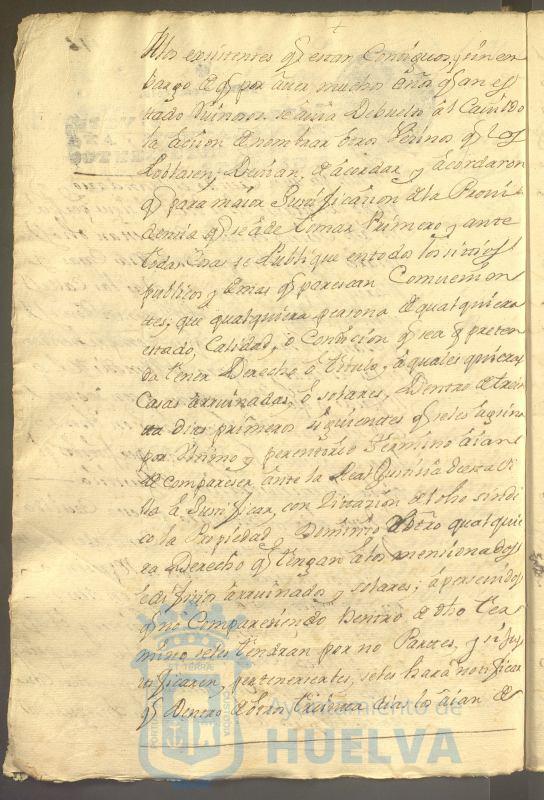 los existentes qe. estan Contiguos, y sin em
bargo de qe. por aver muchos años qe. an es
tado Ruinosos se avia Debuelto al Cavildo
la accion de nombrar otros Vecinos qe. los
Poblasen; Devian, de acordar, y acordaron
qe. para maior Justificazion de la Provi
dencia qe. se a de tomar Primero y ante
todas Cosas se Publique en todos los sitios
publicos y demas qe. parescan Combenien
tes; que qualquiera persona de qualquiera
estado, Calidad, o Condicion qe. sea qe. preten
da tener Derecho, o titulo, a quales quiera
Casas arruinadas, o solares, Dentro de trein
ta dias primeros siguientes qe. se les asigna
por Ultimo y perentorio Termino aian
de comparecer ante la Real Justicia de esta Vi
lla a Justificar, con Zittazion de dho sindi
co la Propiedad, y Dominio u otro qualqui
ra Derecho qe. tengan a los mensionados
edificios arruinados y solares; apercevidos
qe. no Compareciendo Dentro de dho ter
mino se les tendrán por no Partes, y si jus
tificaren, pertenecerles, se les hará notificar
qe. Dentro de otros treinta dias los aian de
Ayuntamiento de
HUELVA